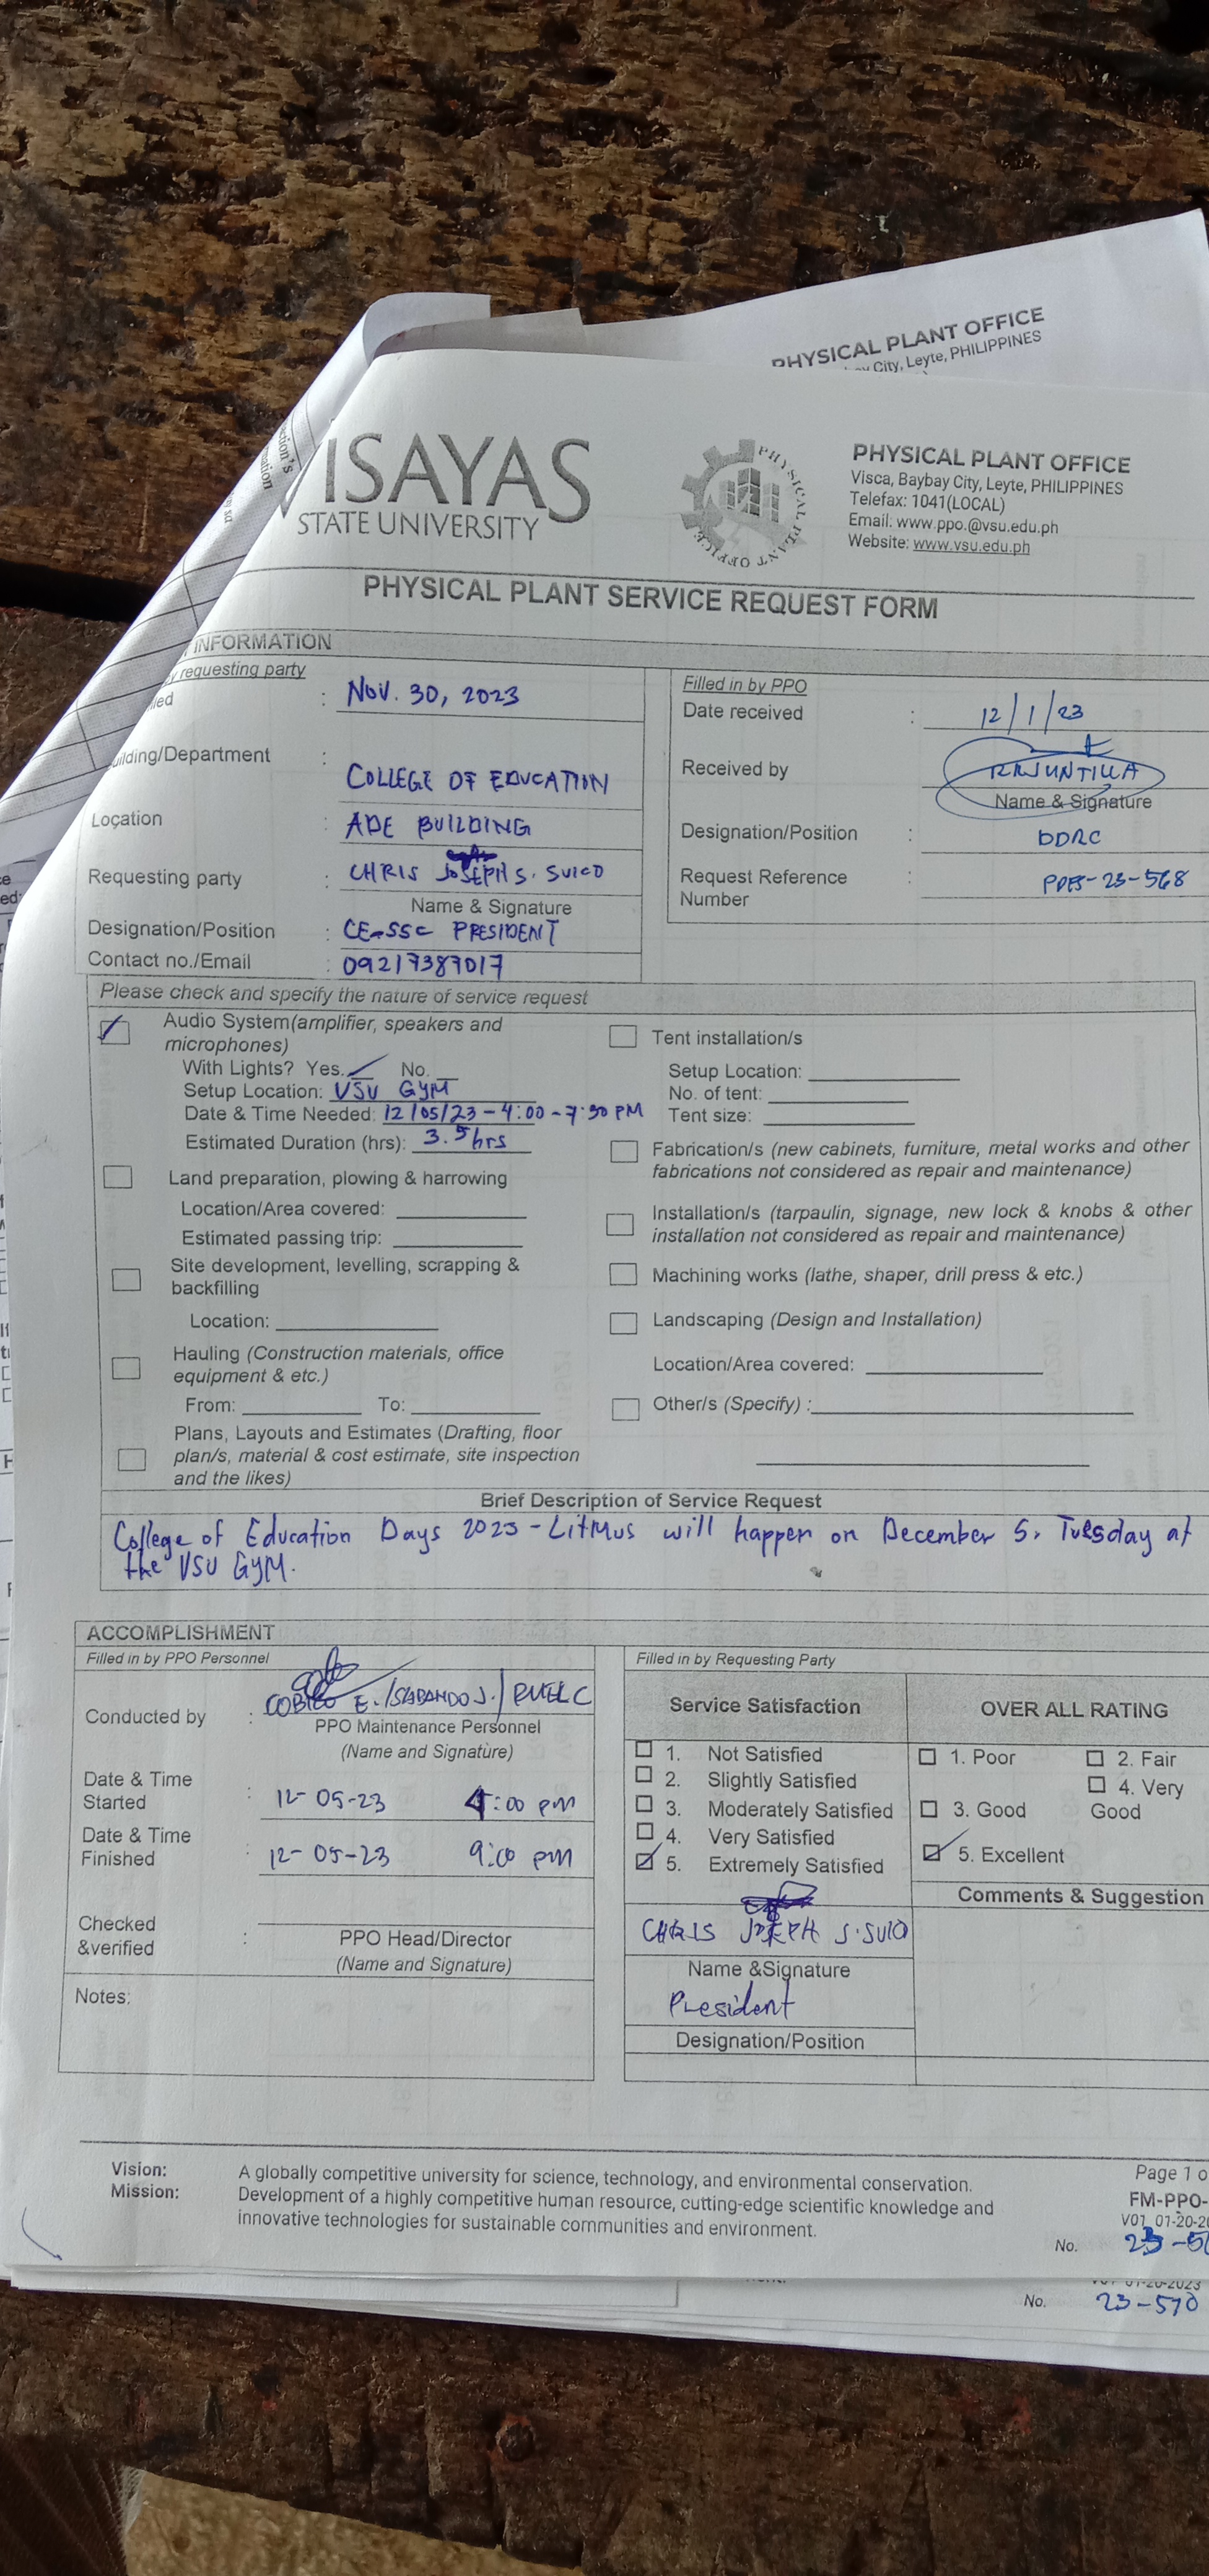 PHYSICAL PLANT OFFICE
City, Leyte, PHILIPPINES
ISAYAS
STATE UNIVERSITY
PHYSICAL PLANT OFFICE
PHYSICAL PLANT OFFICE
Visca, Baybay City, Leyte, PHILIPPINES
Telefax: 1041(LOCAL)
Email: www.ppo.@vsu.edu.ph
Website: www.vsu.edu.ph
PHYSICAL PLANT SERVICE REQUEST FORM
INFORMATION
y requesting party
led : Nov. 30, 2023
uilding/Department : COLLEGE OF EDUCATION
Location : ADE BUILDING
Requesting party : CHRIS JOSEPH S. SUICO
Name & Signature
Designation/Position : CE-SSC PRESIDENT
Contact no./Email : 09217387017
Filled in by PPO
Date received : 12/1/23
Received by
Name & Signature
Designation/Position : DDRC
Request Reference Number : 23-568
Please check and specify the nature of service request
Audio System(amplifier, speakers and
microphones)
With Lights? Yes. No.
Setup Location: VSU GYM
Date & Time Needed: 12/05/23 - 4:00 - 7:30 PM
Estimated Duration (hrs): 3.5hrs
Land preparation, plowing & harrowing
Location/Area covered:
Estimated passing trip:
Site development, levelling, scrapping &
backfilling
Location:
Hauling (Construction materials, office
equipment & etc.)
From: To:
Plans, Layouts and Estimates (Drafting, floor
plan/s, material & cost estimate, site inspection
and the likes)
Tent installation/s
Setup Location:
No. of tent:
Tent size:
Fabrication/s (new cabinets, furniture, metal works and other
fabrications not considered as repair and maintenance)
Installation/s (tarpaulin, signage, new lock & knobs & other
installation not considered as repair and maintenance)
Machining works (lathe, shaper, drill press & etc.)
Landscaping (Design and Installation)
Location/Area covered:
Other/s (Specify) :
Brief Description of Service Request
College of Education Days 2023 - LitMus will happen on December 5, Tuesday at
the VSU GYM.
ACCOMPLISHMENT
Filled in by PPO Personnel
Conducted by : E. / SABANDO J. / RUEL C
PPO Maintenance Personnel
(Name and Signature)
Date & Time
Started 12-05-23 4:00 pm
Date & Time
Finished : 12-05-23 9:00 pm
Checked
&verified :
PPO Head/Director
(Name and Signature)
Notes:
Filled in by Requesting Party
Service Satisfaction
1. Not Satisfied
2. Slightly Satisfied
3. Moderately Satisfied
4. Very Satisfied
5. Extremely Satisfied
OVER ALL RATING
1. Poor 2. Fair
3. Good 4. Very Good
5. Excellent
Comments & Suggestion
CHRIS JOSEPH S. SUICO
Name &Signature
President
Designation/Position
Vision: A globally competitive university for science, technology, and environmental conservation.
Mission: Development of a highly competitive human resource, cutting-edge scientific knowledge and
innovative technologies for sustainable communities and environment.
Page 1 o
FM-PPO-
V01 01-20-20
No. 23-56
No. 23-570